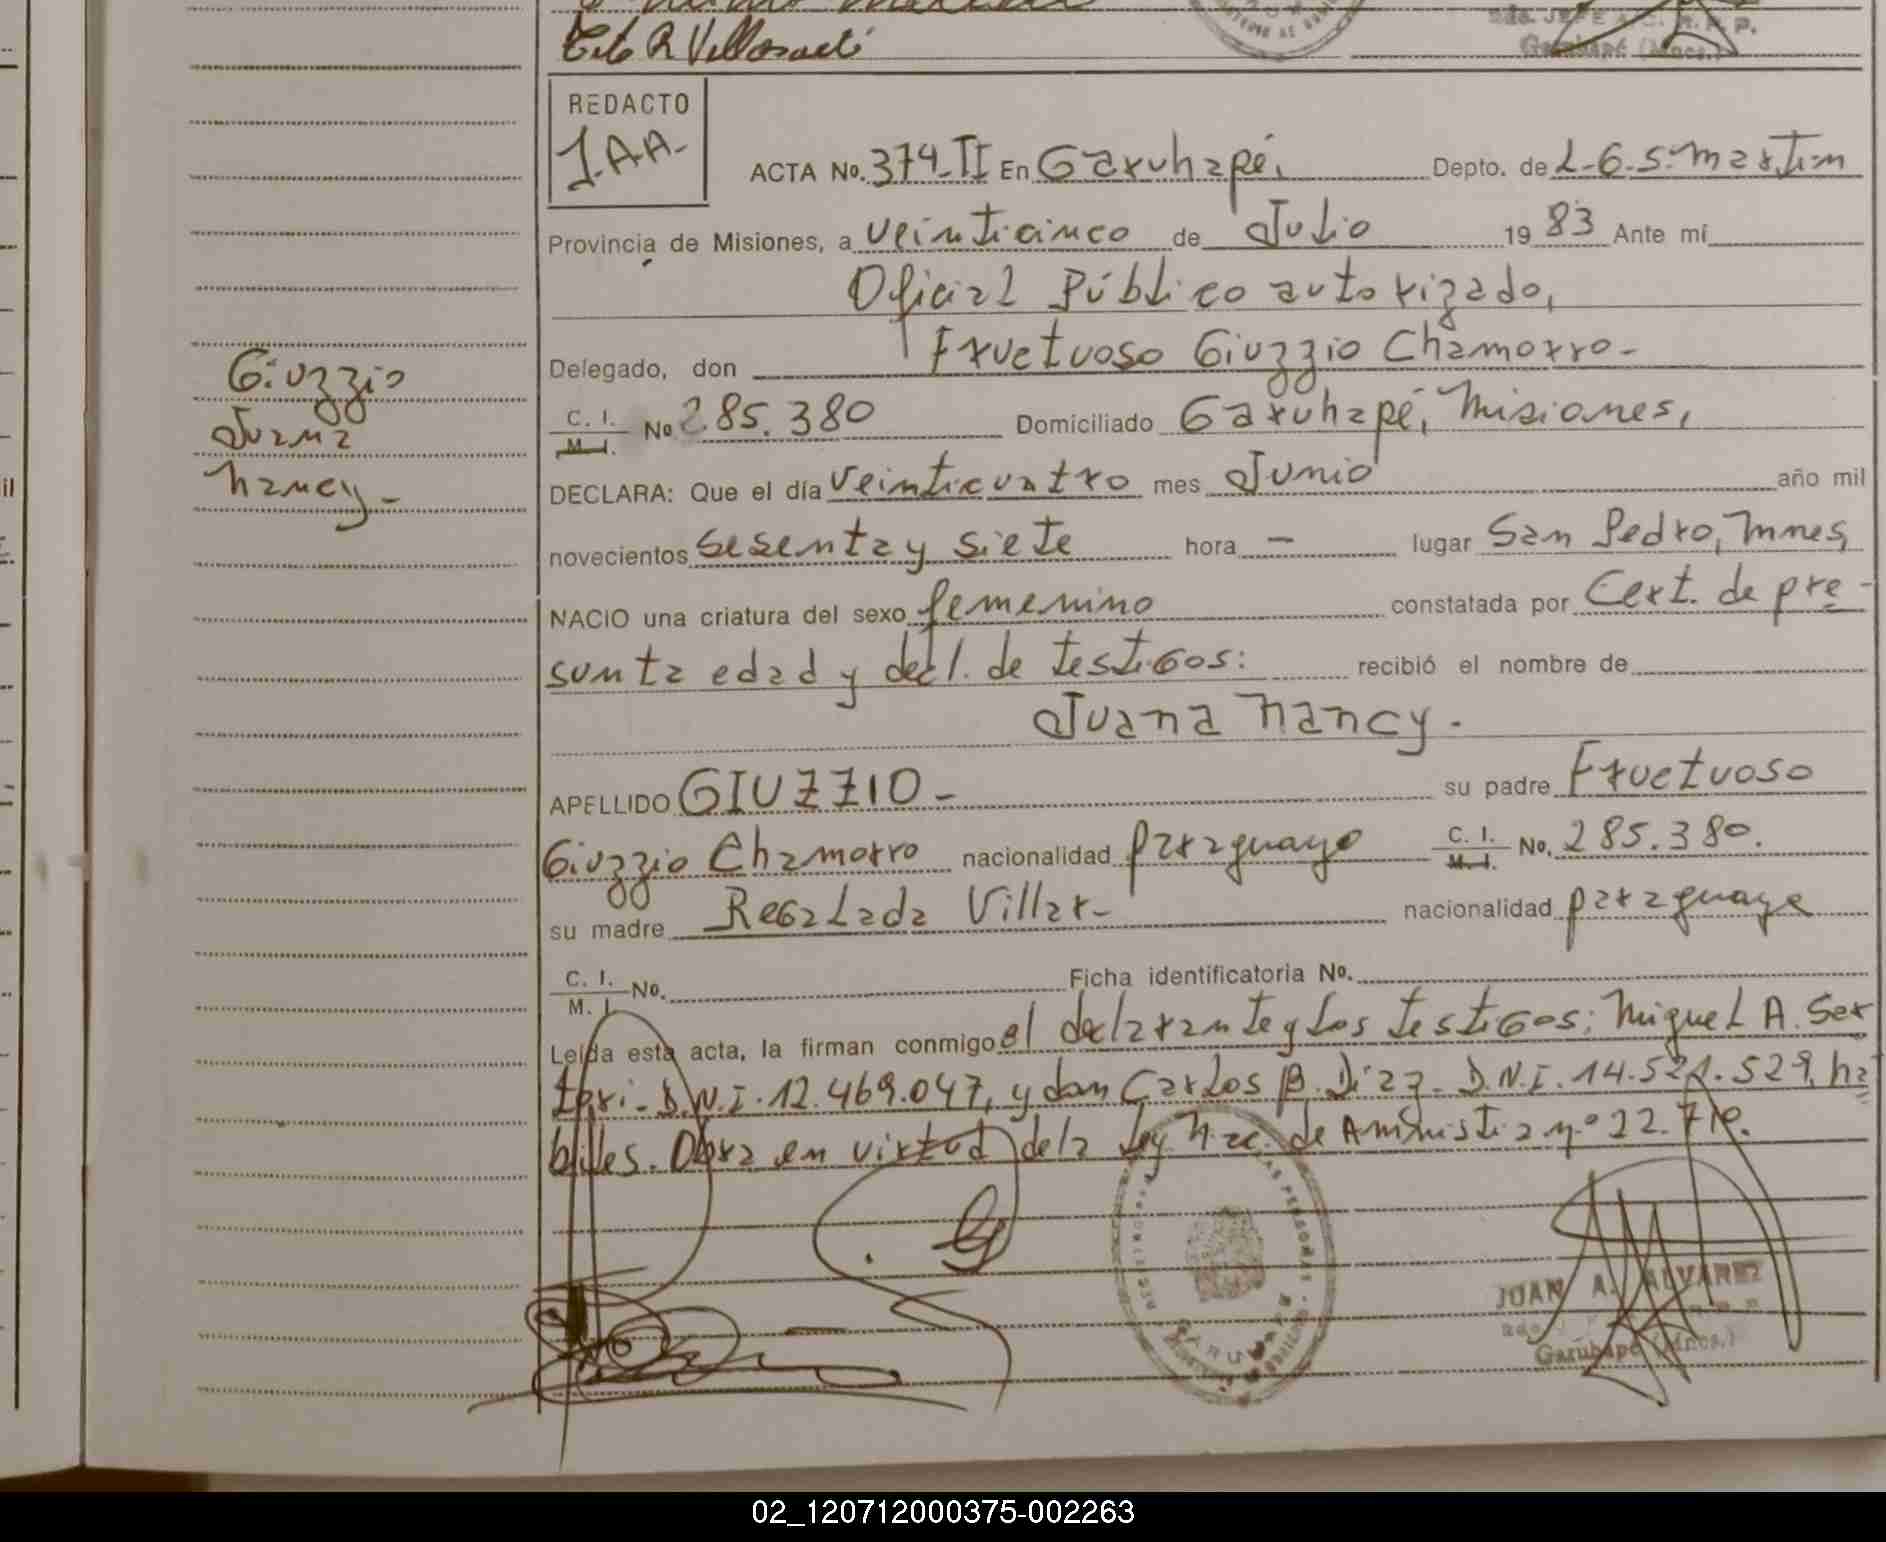 Tito R Villasanti
REDACTO
J.A.A-
ACTA No. 374-II En Garuhapé, Depto. de L-G.S. Martin
Provincia de Misiones, a veinticinco de Julio 1983 Ante mí
Oficial Público autorizado,
Delegado, don Fructuoso Giuzzio Chamorro-
C. I. M. I. No 285.380 Domiciliado Garuhapé, Misiones,
DECLARA: Que el día veinticuatro mes Junio año mil
novecientos sesenta y siete hora - lugar San Pedro, Mnes,
NACIO una criatura del sexo femenino constatada por Cert. de pre-
sunta edad y decl. de testigos: recibió el nombre de
Juana Nancy.
APELLIDO GIUZZIO- su padre Fructuoso
Giuzzio Chamorro nacionalidad paraguayo C. I. M. I. No. 285.380.
su madre Regalada Villar- nacionalidad paraguaya
C. I. M. I. No. Ficha identificatoria No.
Leída esta acta, la firman conmigo el declarante y los testigos: Miguel A. Ser
tori- D.N.I. 12.469.047, y don Carlos B. Diaz- D.N.I. 14.521.529, há
biles. Obra en virtud de la Ley Nac. de Amnistia nº 22.710.
JUAN A. ALVAREZ
Garuhapé (Mnes.)
Giuzzio
Juana
Nancy-
02_120712000375-002263